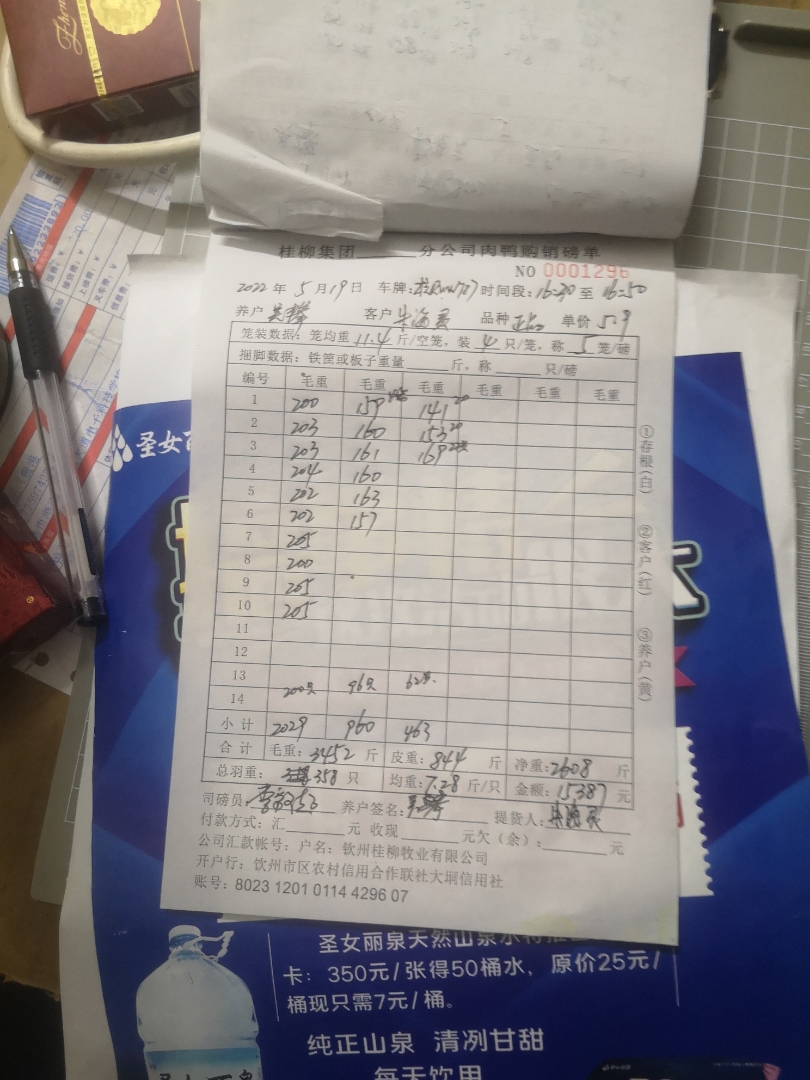 桂柳集团 分公司肉鸭购销磅单
NO 0001296
2022年 5月19日 车牌: 时间段:16:30至16:50
养户 客户 朱海 品种 正品 单价 5.9
笼装数据:笼均重 11.4 斤/空笼,装 4 只/笼,称 5 笼/磅
捆脚数据:铁筐或板子重量 斤,称 只/磅
编号 毛重 毛重 毛重 毛重 毛重 毛重
1 200 159 141 20
2 203 160 153 20
3 203 161 169
4 204 160
5 202 163
6 202 157
7 205
8 200
9 205
10 205
11
12
13
14 200只 96只 62只
小计 2029 960 463
合计 毛重:3452 斤 皮重:844 斤 净重:2608 斤
总羽重: 358 只 均重:7.28 斤/只 金额:15387 元
司磅员 养户签名: 提货人:
付款方式:汇 元 收现 元欠(余): 元
公司汇款帐号:户名:钦州桂柳牧业有限公司
开户行:钦州市区农村信用合作联社大垌信用社
账号:8023 1201 0114 4296 07
①存根(白)
②客户(红)
③养户(黄)
圣女丽
圣女丽泉天然山泉水特
卡:350元/张得50桶水,原价25元/
桶现只需7元/桶。
纯正山泉 清冽甘甜
每天饮用
圣女丽泉